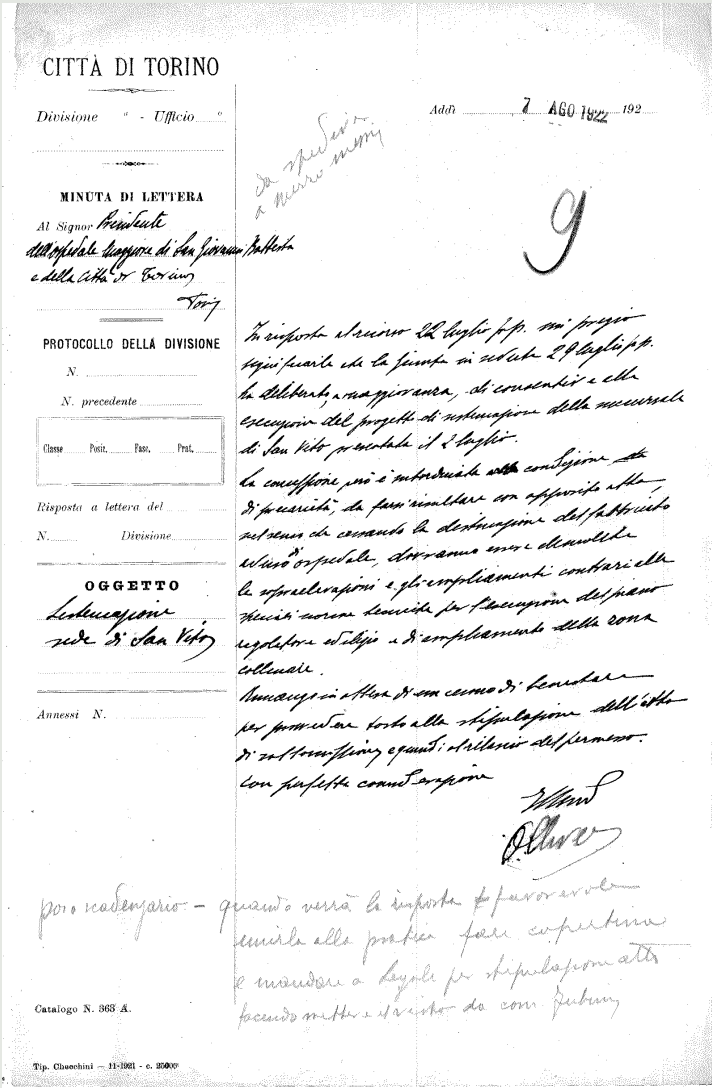 CITTÀ DI TORINO
Divisione a - Ufficio o
Addì 7 AGO 1922 192
da spedirsi
a mezzo messi
9
MINUTA DI LETTERA
Al Signor Presidente
dell'ospedale Maggiore di San Giovanni Battista
e della Città di Torino
Torino
PROTOCOLLO DELLA DIVISIONE
N.
N. precedente
Classe Posiz. Fasc. Prat.
Risposta a lettera del
N. Divisione
OGGETTO
Sistemazione
sede di San Vito
Annessi N.
In risposta al ricorso 22 luglio p.p. mi pregio
significarle che la Giunta in seduta 29 luglio p.p.
ha deliberato, a maggioranza, di consentire alla
esecuzione del progetto di sistemazione della succursale
di San Vito presentata il 2 luglio.
La concessione però è subordinata condizione
di precarietà, da farsi risultare con apposito atto,
nel senso che cessando la destinazione del fabbricato
ad uso di ospedale, dovranno essere demolite
le sopraelevazioni e gli ampliamenti contrari alle
speciali norme tecniche per l'esecuzione del piano
regolatore edilizio e di ampliamento della zona
collinare.
Rimango in attesa di un cenno di benestare
per provvedere tosto alla stipulazione dell'atto
di sottomissione, e quindi al rilascio del permesso.
Con perfetta considerazione
poso scadenzario - quando verrà la risposta favorevole
unirla alla pratica fare copertina
e mandare a Legale per stipulazione atto
facendo mettere il visto da com.
Catalogo N. 363 A.
Tip. Checchini — 11-1921 - c. 25000